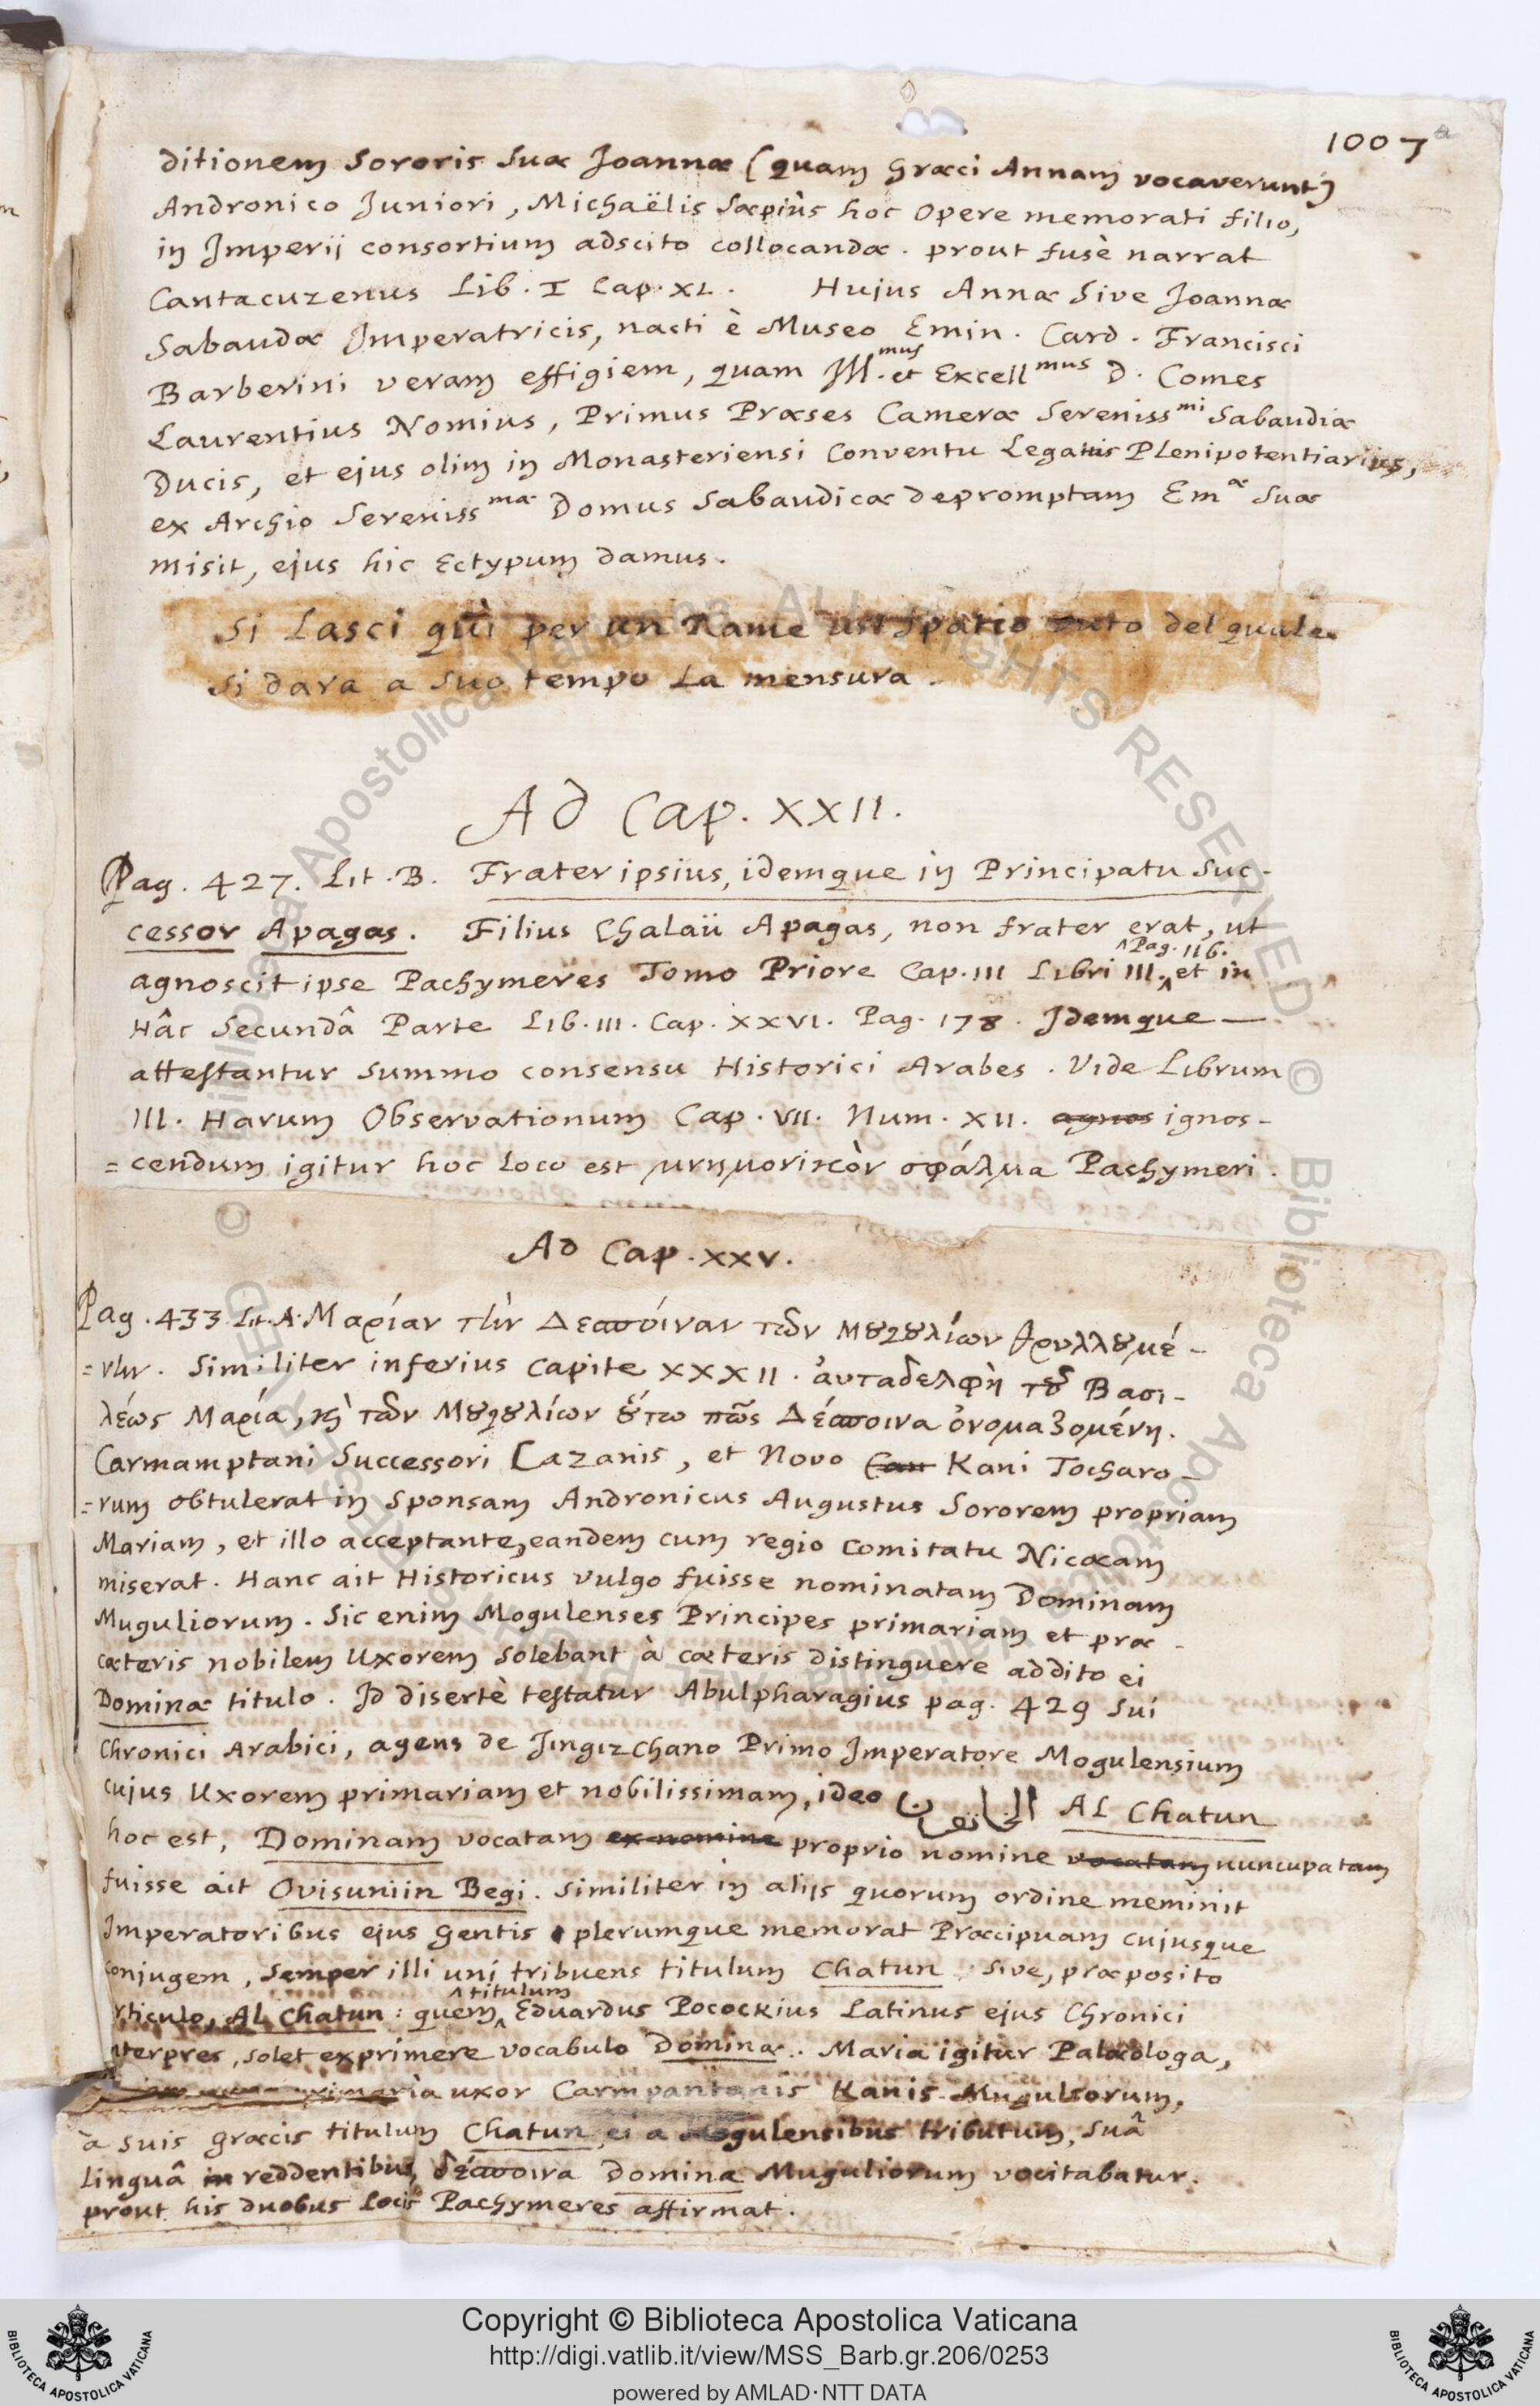 1007
ditionem Sororis Suæ Joannæ (quam Græci Annam vocaverunt)
Andronico Juniori, Michaëlis Sæpiùs hoc Opere memorati filio,
in Imperij consortium adscito collocandæ. prout fusè narrat
Cantacuzenus Lib. I Cap. XL. Hujus Annæ Sive Joannæ
Sabaudæ Imperatricis, nacti è Museo Emin. Card. Francisci
Barberini veram effigiem, quam Ill.mus et Excellmus D. Comes
Laurentius Nomius, Primus Præses Cameræ Serenissmi Sabaudiæ
Ducis, et ejus olim in Monasteriensi Conventu Legatus Plenipotentiarius,
ex Archio Serenissmæ Domus Sabaudicæ depromptam Emæ Suæ
misit, ejus hic Ectypum damus.
Si Lasci quì per un Rame un spatio del quale
si dara a suo tempo La mensura.
Ad Cap. XXII.
Pag. 427. Lit. B. Frater ipsius, idemque in Principatu Suc-
cessor Apagas. Filius Chalaii Apagas, non frater erat, ut
agnoscit ipse Pachymeres Tomo Priore Cap. III Libri III. Pag. 116. et in
Hâc Secundâ Parte Lib. III. Cap. XXVI. Pag. 178. Idemque —
attestantur summo consensu Historici Arabes. Vide Librum
III. Harum Observationum Cap. VII. Num. XII. agnos ignos-
=cendum igitur hoc Loco est μνημονικὸν σφάλμα Pachymeri.
Ad Cap. XXV.
Pag. 433 Lit. A. Μαρίαν τὴν Δεσποίναν τῶν Μουγουλίων θρυλλουμέ-
=νην. Similiter inferius capite XXXII. ἀυταδελφὴ τοῦ Βασι-
λέως Μαρία, καὶ τῶν Μουγουλίων οὕτω πῶς Δέσποινα ὀνομαζομένη.
Carmamptani Successori Cazanis, et Novo Can Kani Tocharo-
=rum obtulerat in Sponsam Andronicus Augustus Sororem propriam
Mariam, et illo acceptante, eandem cum regio comitatu Nicæam
miserat. Hanc ait Historicus vulgo fuisse nominatam Dominam
Muguliorum. Sic enim Mogulenses Principes primariam et præ-
cæteris nobilem Uxorem Solebant à cæteris distinguere addito ei
Dominæ titulo. Id disertè testatur Abulpharagius pag. 429 Sui
Chronici Arabici, agens de Jingizchano Primo Imperatore Mogulensium
cujus Uxorem primariam et nobilissimam, ideo الخاتون AL Chatun
hoc est, Dominam vocatam ex nomine proprio nomine vocatam nuncupatam
fuisse ait Ovisuniin Begi. Similiter in alijs quorum ordine meminit
Imperatoribus ejus gentis plerumque memorat Præcipuam cujusque
conjugem, Semper illi uni tribuens titulum Chatun, Sive, præposito
rticulo, AL Chatun: quem titulum Eduardus Pocockius Latinus ejus Chronici
nterpres, solet exprimere vocabulo Dominæ. Maria igitur Palæologa,
uxor Carmpantanis Kanis Muguliorum,
à suis græcis titulum Chatun, ei a Mogulensibus tributum, Suâ
Linguâ in reddentibus, δέσποινα Domina Muguliorum vocitabatur.
prout his duobus Locis Pachymeres affirmat.
Copyright © Biblioteca Apostolica Vaticana
http://digi.vatlib.it/view/MSS_Barb.gr.206/0253
powered by AMLAD·NTT DATA
BIBLIOTECA APOSTOLICA VATICANA
BIBLIOTECA APOSTOLICA VATICANA